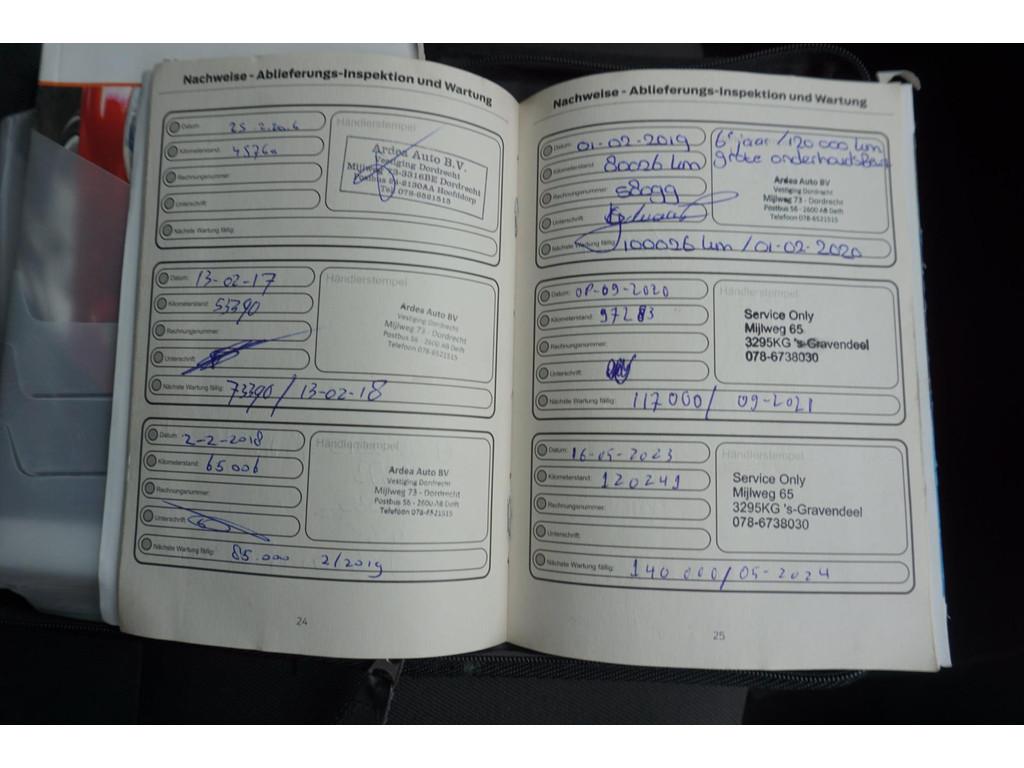 Nachweise - Ablieferungs-Inspektion und Wartung
Datum: 25 2 2016
Kilometerstand:
Rechnungsnummer:
Unterschrift:
Nächste Wartung fällig:
Händlerstempel
Ardea Auto B.V.
Vestiging Dordrecht
Mijlweg 73-3316BE Dordrecht
Postbus 2130AA Hoofddorp
Tel. 078-6521515
Datum: 13-02-17
Kilometerstand: 53390
Rechnungsnummer:
Unterschrift:
Nächste Wartung fällig: 73390 / 13-02-18
Händlerstempel
Ardea Auto BV
Vestiging Dordrecht
Mijlweg 73 - Dordrecht
Postbus 56 - 2600 AB Delft
Telefoon 078-6521515
Datum: 2-2-2018
Kilometerstand: 65006
Rechnungsnummer:
Unterschrift:
Nächste Wartung fällig: 85.000 2/2019
Händlerstempel
Ardea Auto BV
Vestiging Dordrecht
Mijlweg 73 - Dordrecht
Postbus 56 - 2600 AB Delft
Telefoon 078-6521515
24
Nachweise - Ablieferungs-Inspektion und Wartung
Datum: 01-02-2019
Kilometerstand: 80026 km
Rechnungsnummer: 68099
Unterschrift:
Nächste Wartung fällig: 100026 km / 01-02-2020
6e jaar / 120 000 km
grote onderhoudsbeurt
Ardea Auto BV
Vestiging Dordrecht
Mijlweg 73 - Dordrecht
Postbus 56 - 2600 AB Delft
Telefoon 078-6521515
Datum: 08-09-2020
Kilometerstand: 97283
Rechnungsnummer:
Unterschrift:
Nächste Wartung fällig: 117000 / 09-2021
Händlerstempel
Service Only
Mijlweg 65
3295KG 's-Gravendeel
078-6738030
Datum: 16-05-2023
Kilometerstand: 120241
Rechnungsnummer:
Unterschrift:
Nächste Wartung fällig: 140 000 / 05-2024
Händlerstempel
Service Only
Mijlweg 65
3295KG 's-Gravendeel
078-6738030
25